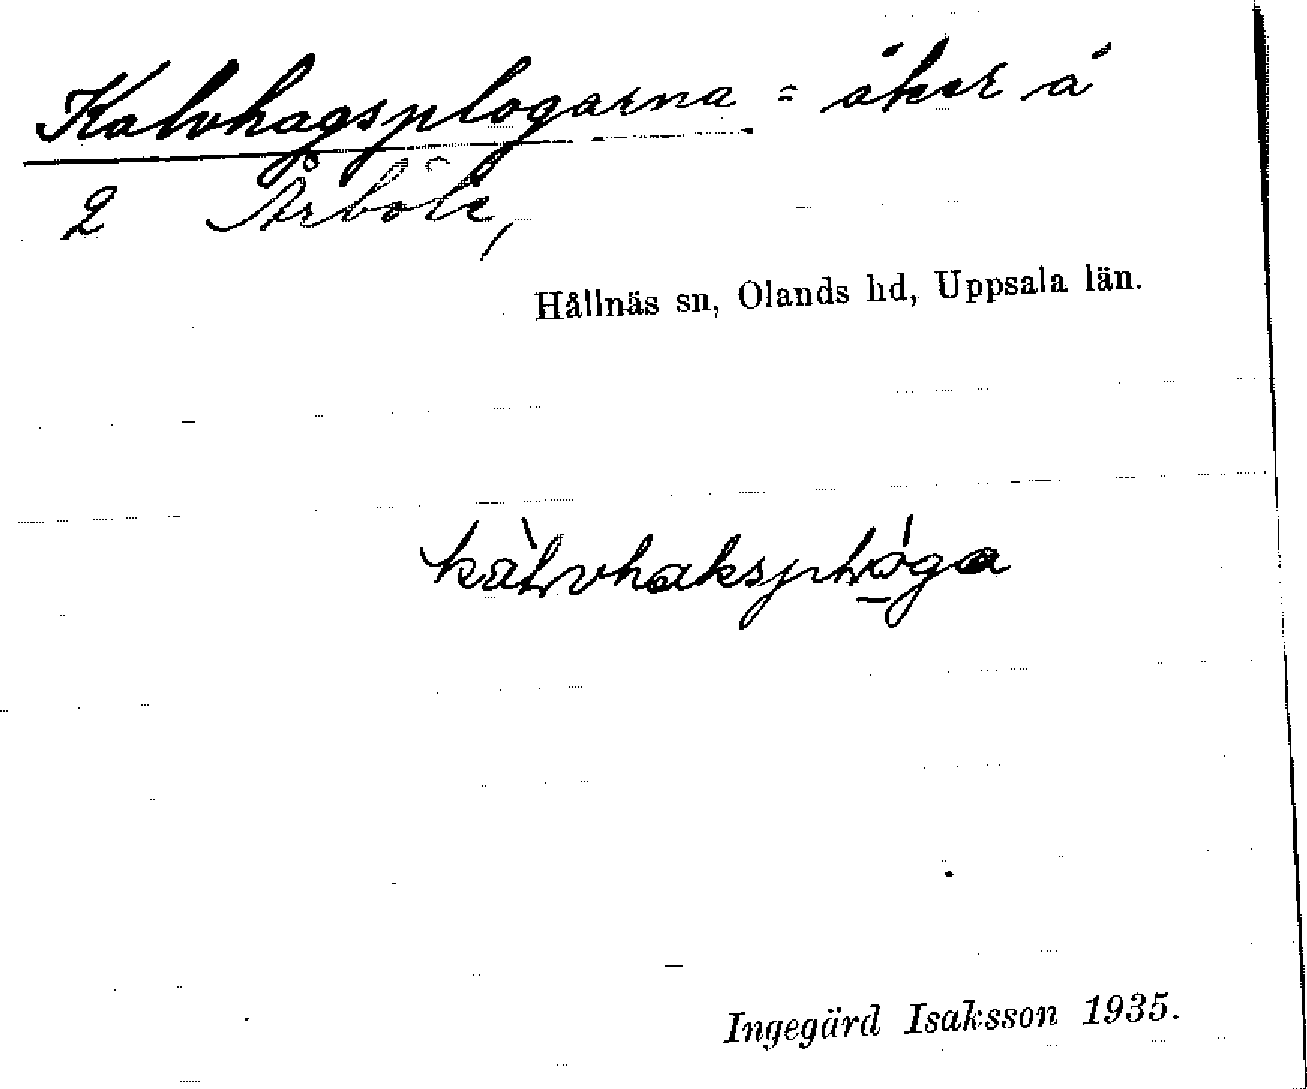 Kalvhagsplogarna = åker å
2 Årböle,
Hållnäs sn, Olands hd, Uppsala län.
Ingegärd Isaksson 1935.